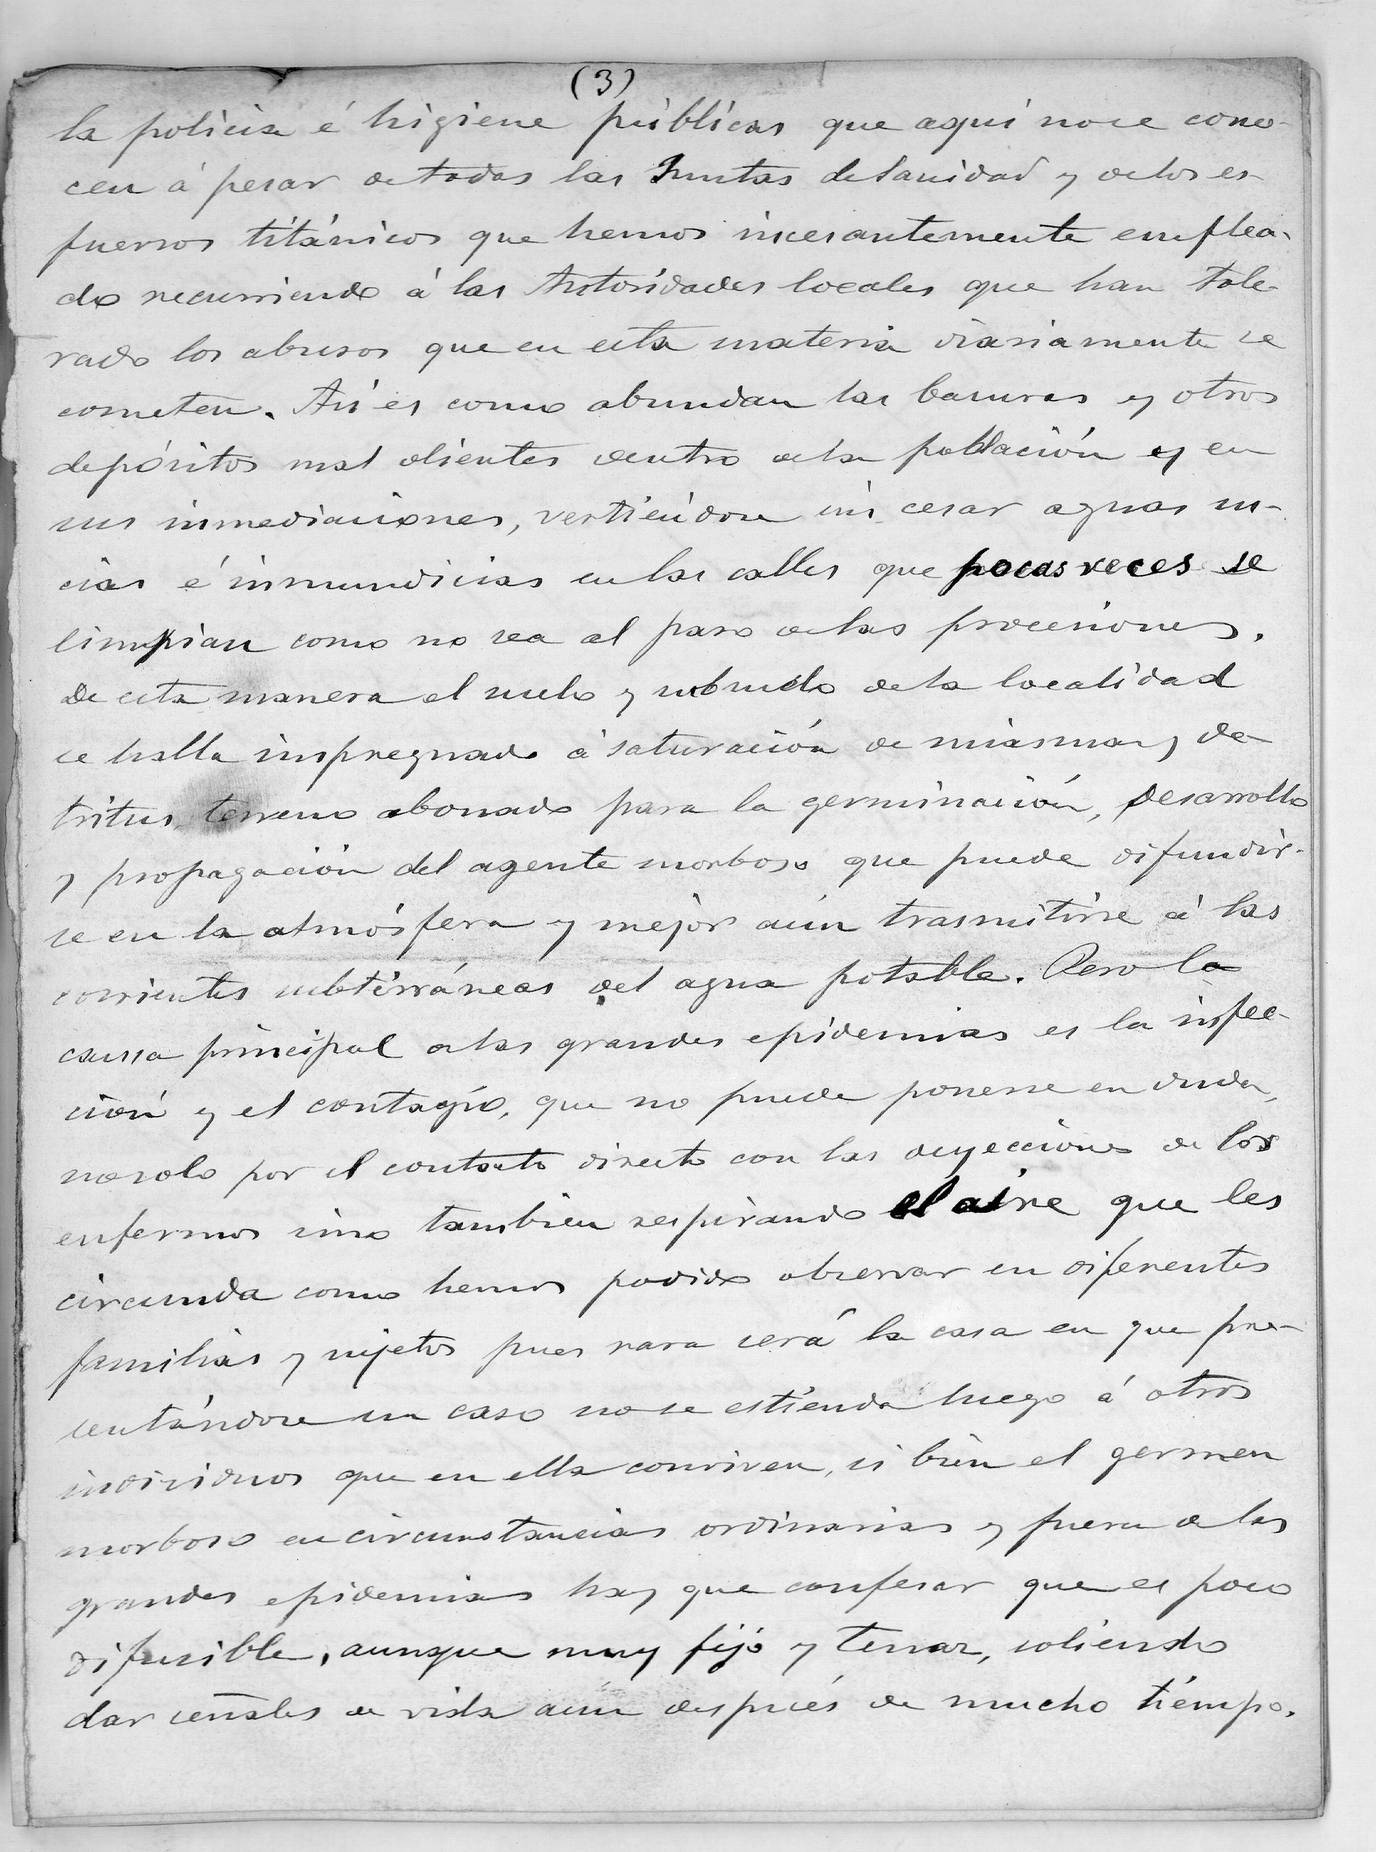 (3)
la policia é higiene públicas que aqui no se cono-
cen á pesar de todas las Juntas de Sanidad y de los es-
fuerzos titánicos que hemos incesantemente emplea-
do recurriendo á las Autoridades locales que han tole-
rado los abusos que en esta materia diariamente se
cometen. Asi es como abundan las basuras y otros
depósitos mal olientes dentro de la población y en
sus inmediaciones, vertiéndose sin cesar aguas su-
cias é inmundicias en las calles que pocas veces se
limpian como no sea al paso de las procesiones.
De esta manera el suelo y subsuelo de la localidad
se halla impregnado á saturación de miasmas y de-
tritus, terreno abonado para la germinación, desarrollo
y propagación del agente morboso que puede difundir-
se en la atmósfera y mejor aún trasmitirse á las
corrientes subterráneas del agua potable. Pero la
causa principal de las grandes epidemias es la infec-
ción y el contagio, que no puede ponerse en duda,
no solo por el contacto directo con las deyecciones de los
enfermos sino tambien respirando el aire que les
circunda como hemos podido observar en diferentes
familias y sujetos pues rara será la casa en que pre-
sentándose un caso no se estienda luego á otros
individuos que en ella conviven, si bien el germen
morboso en circunstancias ordinarias y fuera de las
grandes epidemias hay que confesar que es poco
difusible, aunque muy fijo y tenaz, soliendo
dar señales de vida aún después de mucho tiempo.